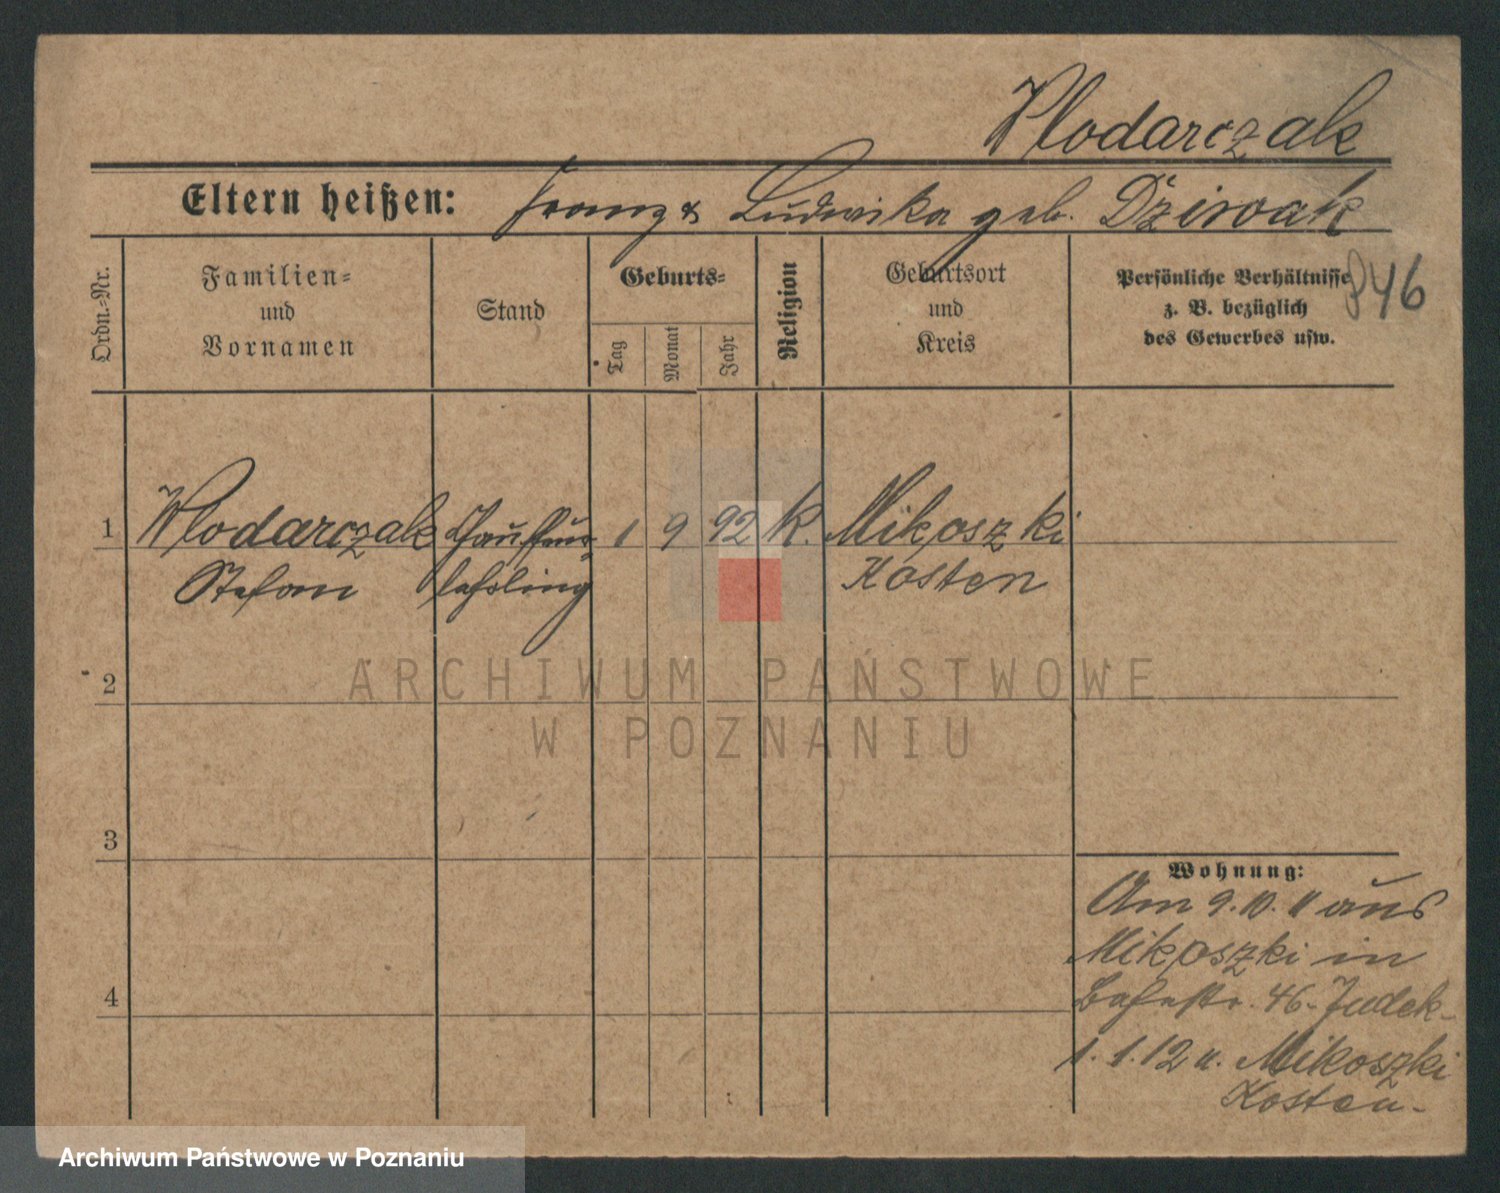 Wlodarczak
Eltern heißen: Franz & Ludwika geb. Dziwak
Ordn.-Nr.
Familien-
und
Vornamen
Stand
Geburts-
Tag
Monat
Jahr
Religion
Geburtsort
und
Kreis
Persönliche Verhältnisse
z. B. bezüglich
des Gewerbes usw.
846
1 Wlodarczak Chauffeur- 1 9 92 K. Mikoszki
Stefan lehrling Kosten
2
ARCHIWUM PAŃSTWOWE
W POZNANIU
3
Wohnung:
Am 9.10.11 aus
Mikoszki in
46. Judek-
4
1.1.12 n. Mikoszki
Kosten.
Archiwum Państwowe w Poznaniu